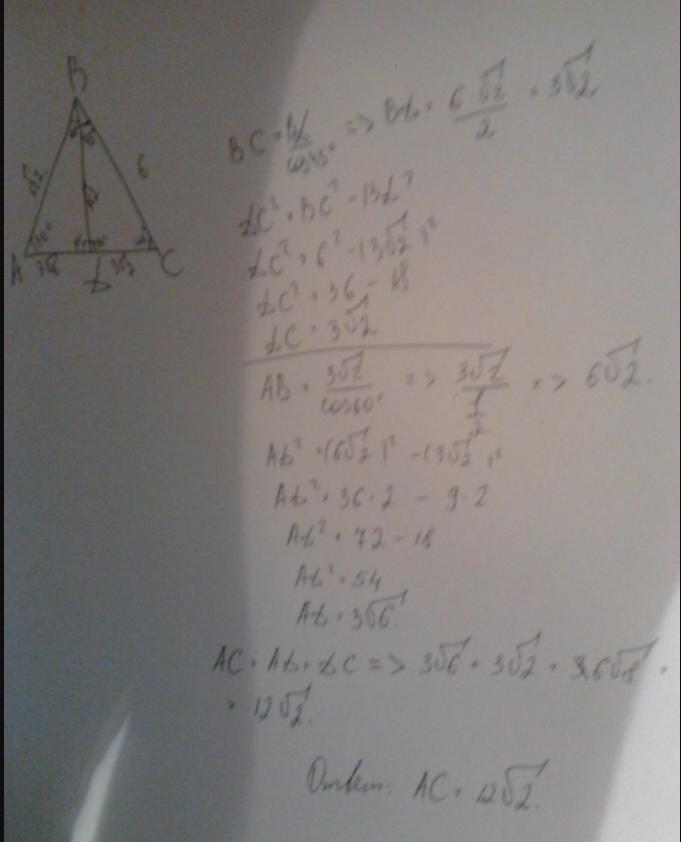 B
6
A
C
BC = BD/cos45° => BD = 6·√2/2 = 3√2
DC² = BC² - BD²
DC² = 6² - (3√2)²
DC² = 36 - 18
DC = 3√2
AB = 3√2/cos60° => 3√2/(1/2) => 6√2.
AD² = (6√2)² - (3√2)²
AD² = 36·2 - 9·2
AD² = 72 - 18
AD² = 54
AD = 3√6.
AC = AD + DC => 3√6 + 3√2 = 6√8 =
= 12√2.
Ответ: AC = 12√2.